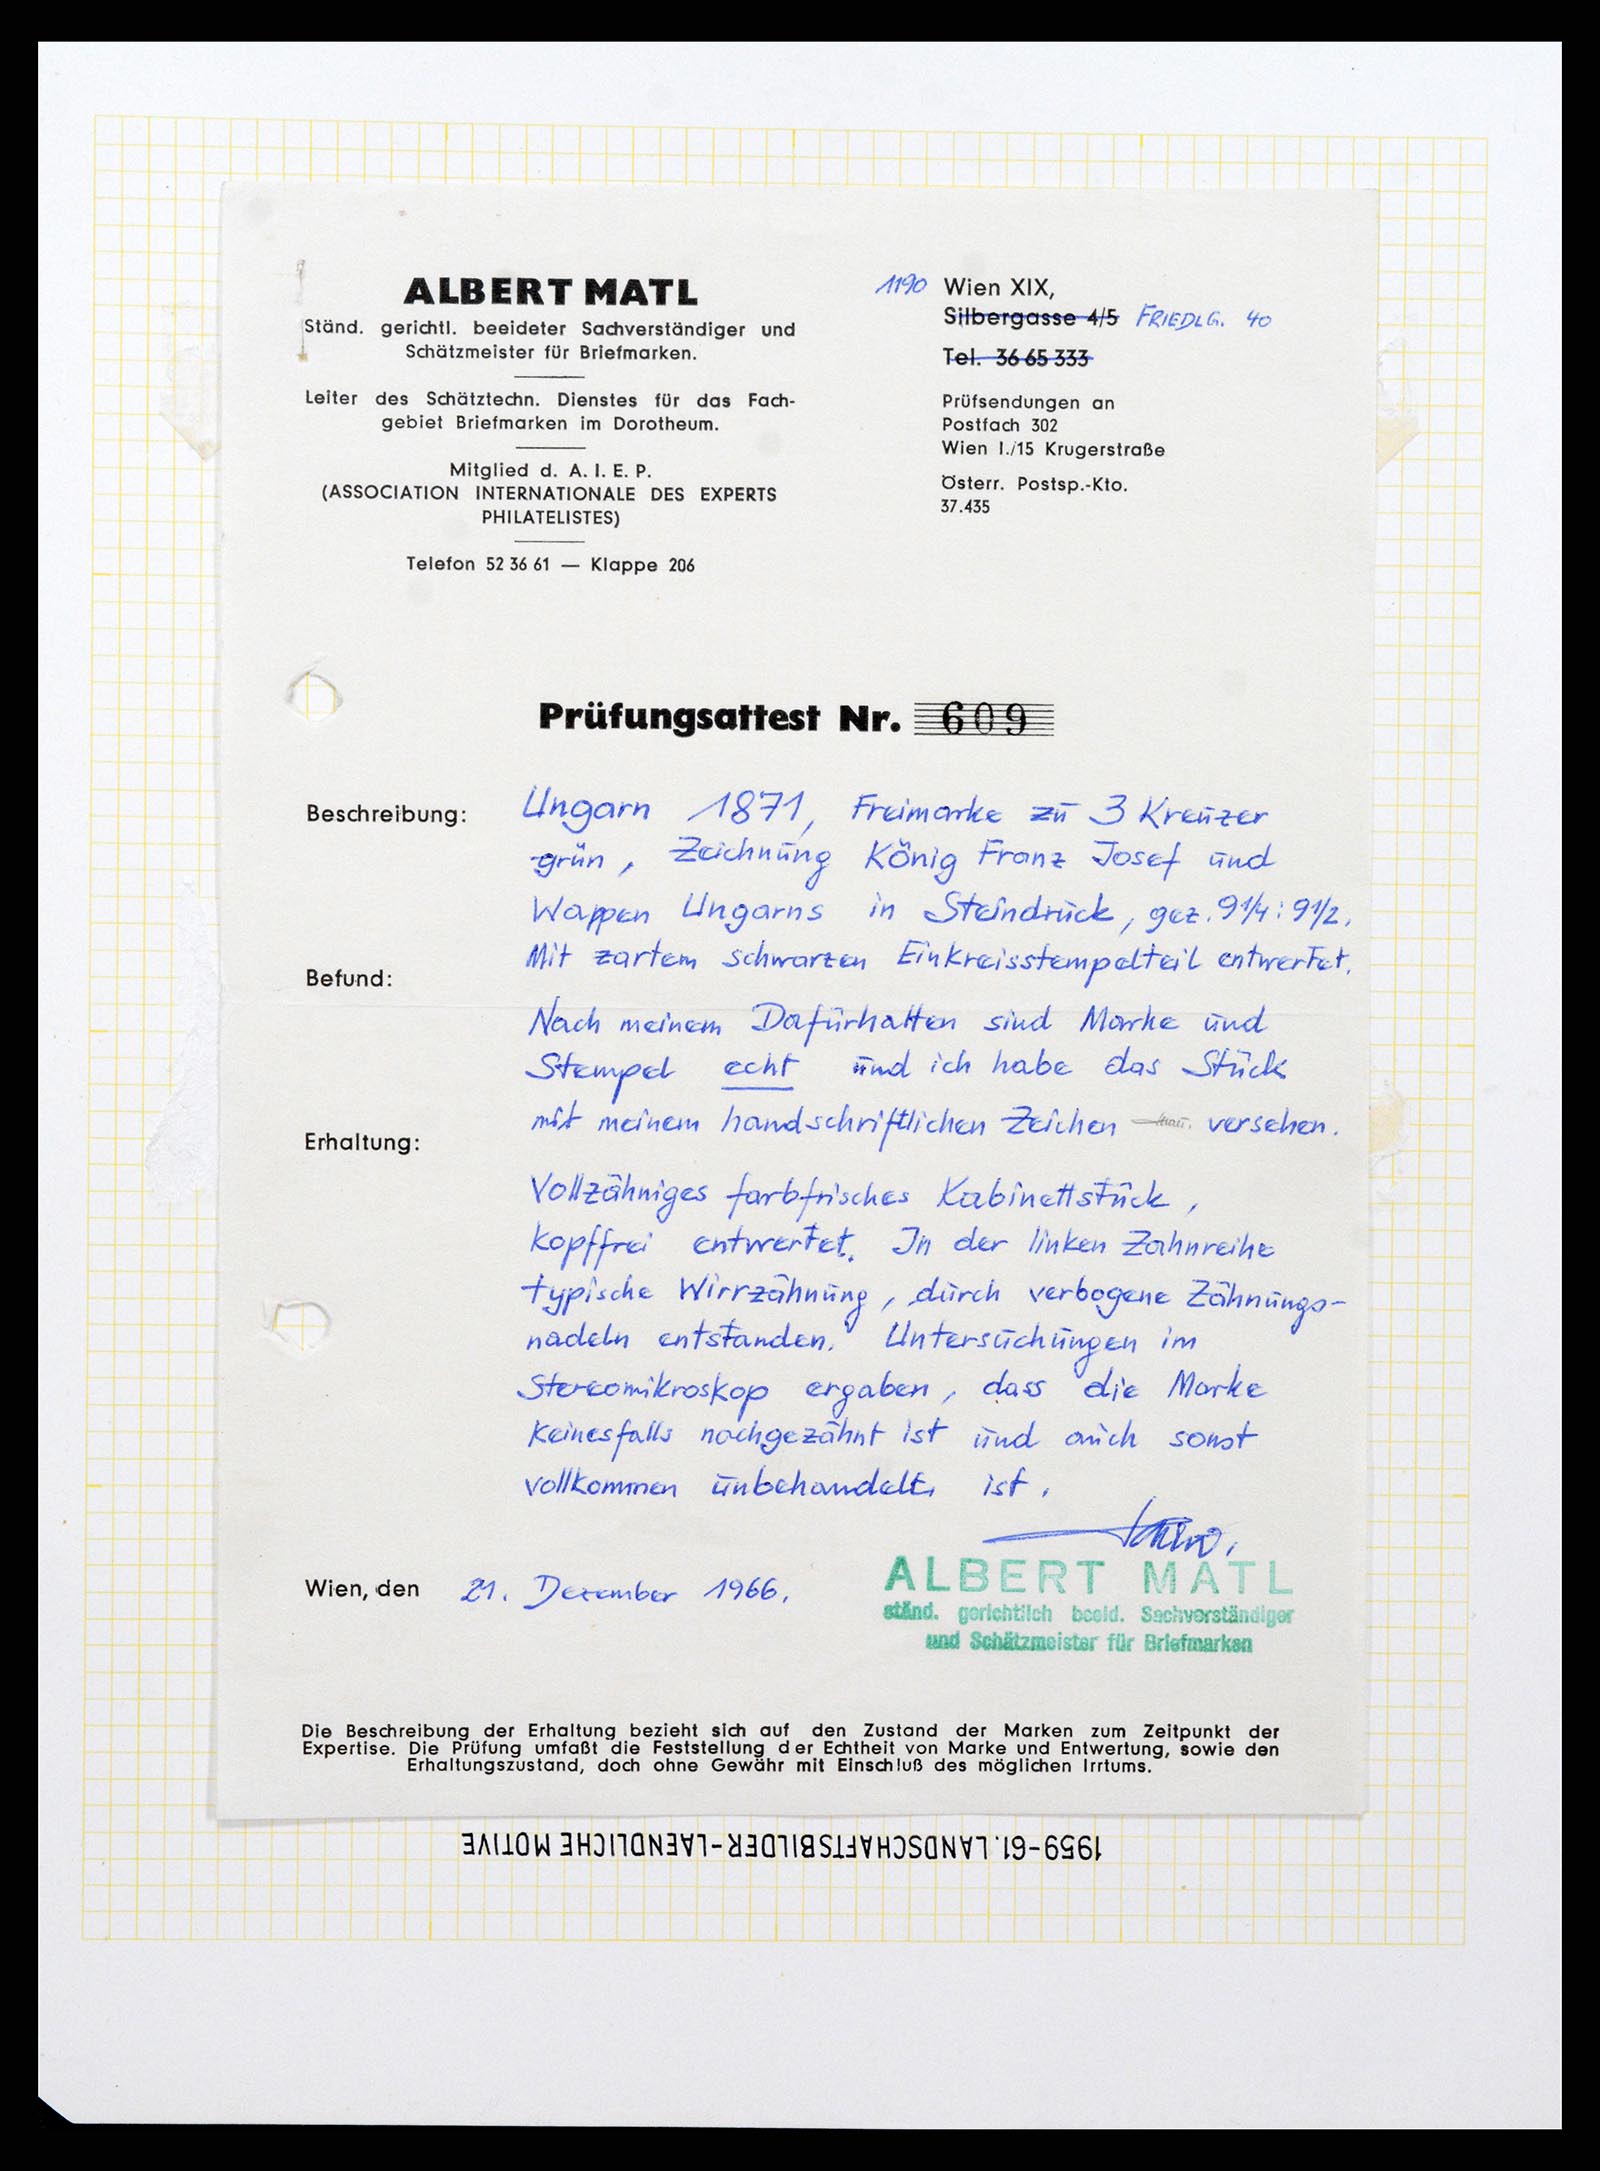 ALBERT MATL
Ständ. gerichtl. beeideter Sachverständiger und
Schätzmeister für Briefmarken.
Leiter des Schätztechn. Dienstes für das Fach-
gebiet Briefmarken im Dorotheum.
Mitglied d. A. I. E. P.
(ASSOCIATION INTERNATIONALE DES EXPERTS
PHILATELISTES)
Telefon 52 36 61 — Klappe 206
1190 Wien XIX,
Silbergasse 4/5 FRIEDLG. 40
Tel. 36 65 333
Prüfsendungen an
Postfach 302
Wien I./15 Krugerstraße
Österr. Postsp.-Kto.
37.435
Prüfungsattest Nr. 609
Beschreibung: Ungarn 1871, Freimarke zu 3 Kreuzer
grün, Zeichnung König Franz Josef und
Wappen Ungarns in Steindruck, gez. 9 1/4 : 9 1/2.
Mit zartem schwarzen Einkreisstempelteil entwertet.
Befund:
Nach meinem Dafürhalten sind Marke und
Stempel echt und ich habe das Stück
mit meinem handschriftlichen Zeichen versehen.
Erhaltung:
Vollzähniges farbfrisches Kabinettstück,
kopffrei entwertet. In der linken Zahnreihe
typische Wirrzähnung, durch verbogene Zähnungs-
nadeln entstanden. Untersuchungen im
Stereomikroskop ergaben, dass die Marke
keinesfalls nachgezähnt ist und auch sonst
vollkommen unbehandelt ist.
Wien, den 21. Dezember 1966.
ALBERT MATL
ständ. gerichtlich beeid. Sachverständiger
und Schätzmeister für Briefmarken
Die Beschreibung der Erhaltung bezieht sich auf den Zustand der Marken zum Zeitpunkt der
Expertise. Die Prüfung umfaßt die Feststellung der Echtheit von Marke und Entwertung, sowie den
Erhaltungszustand, doch ohne Gewähr mit Einschluß des möglichen Irrtums.
1959-61. LANDSCHAFTSBILDER-LAENDLICHE MOTIVE